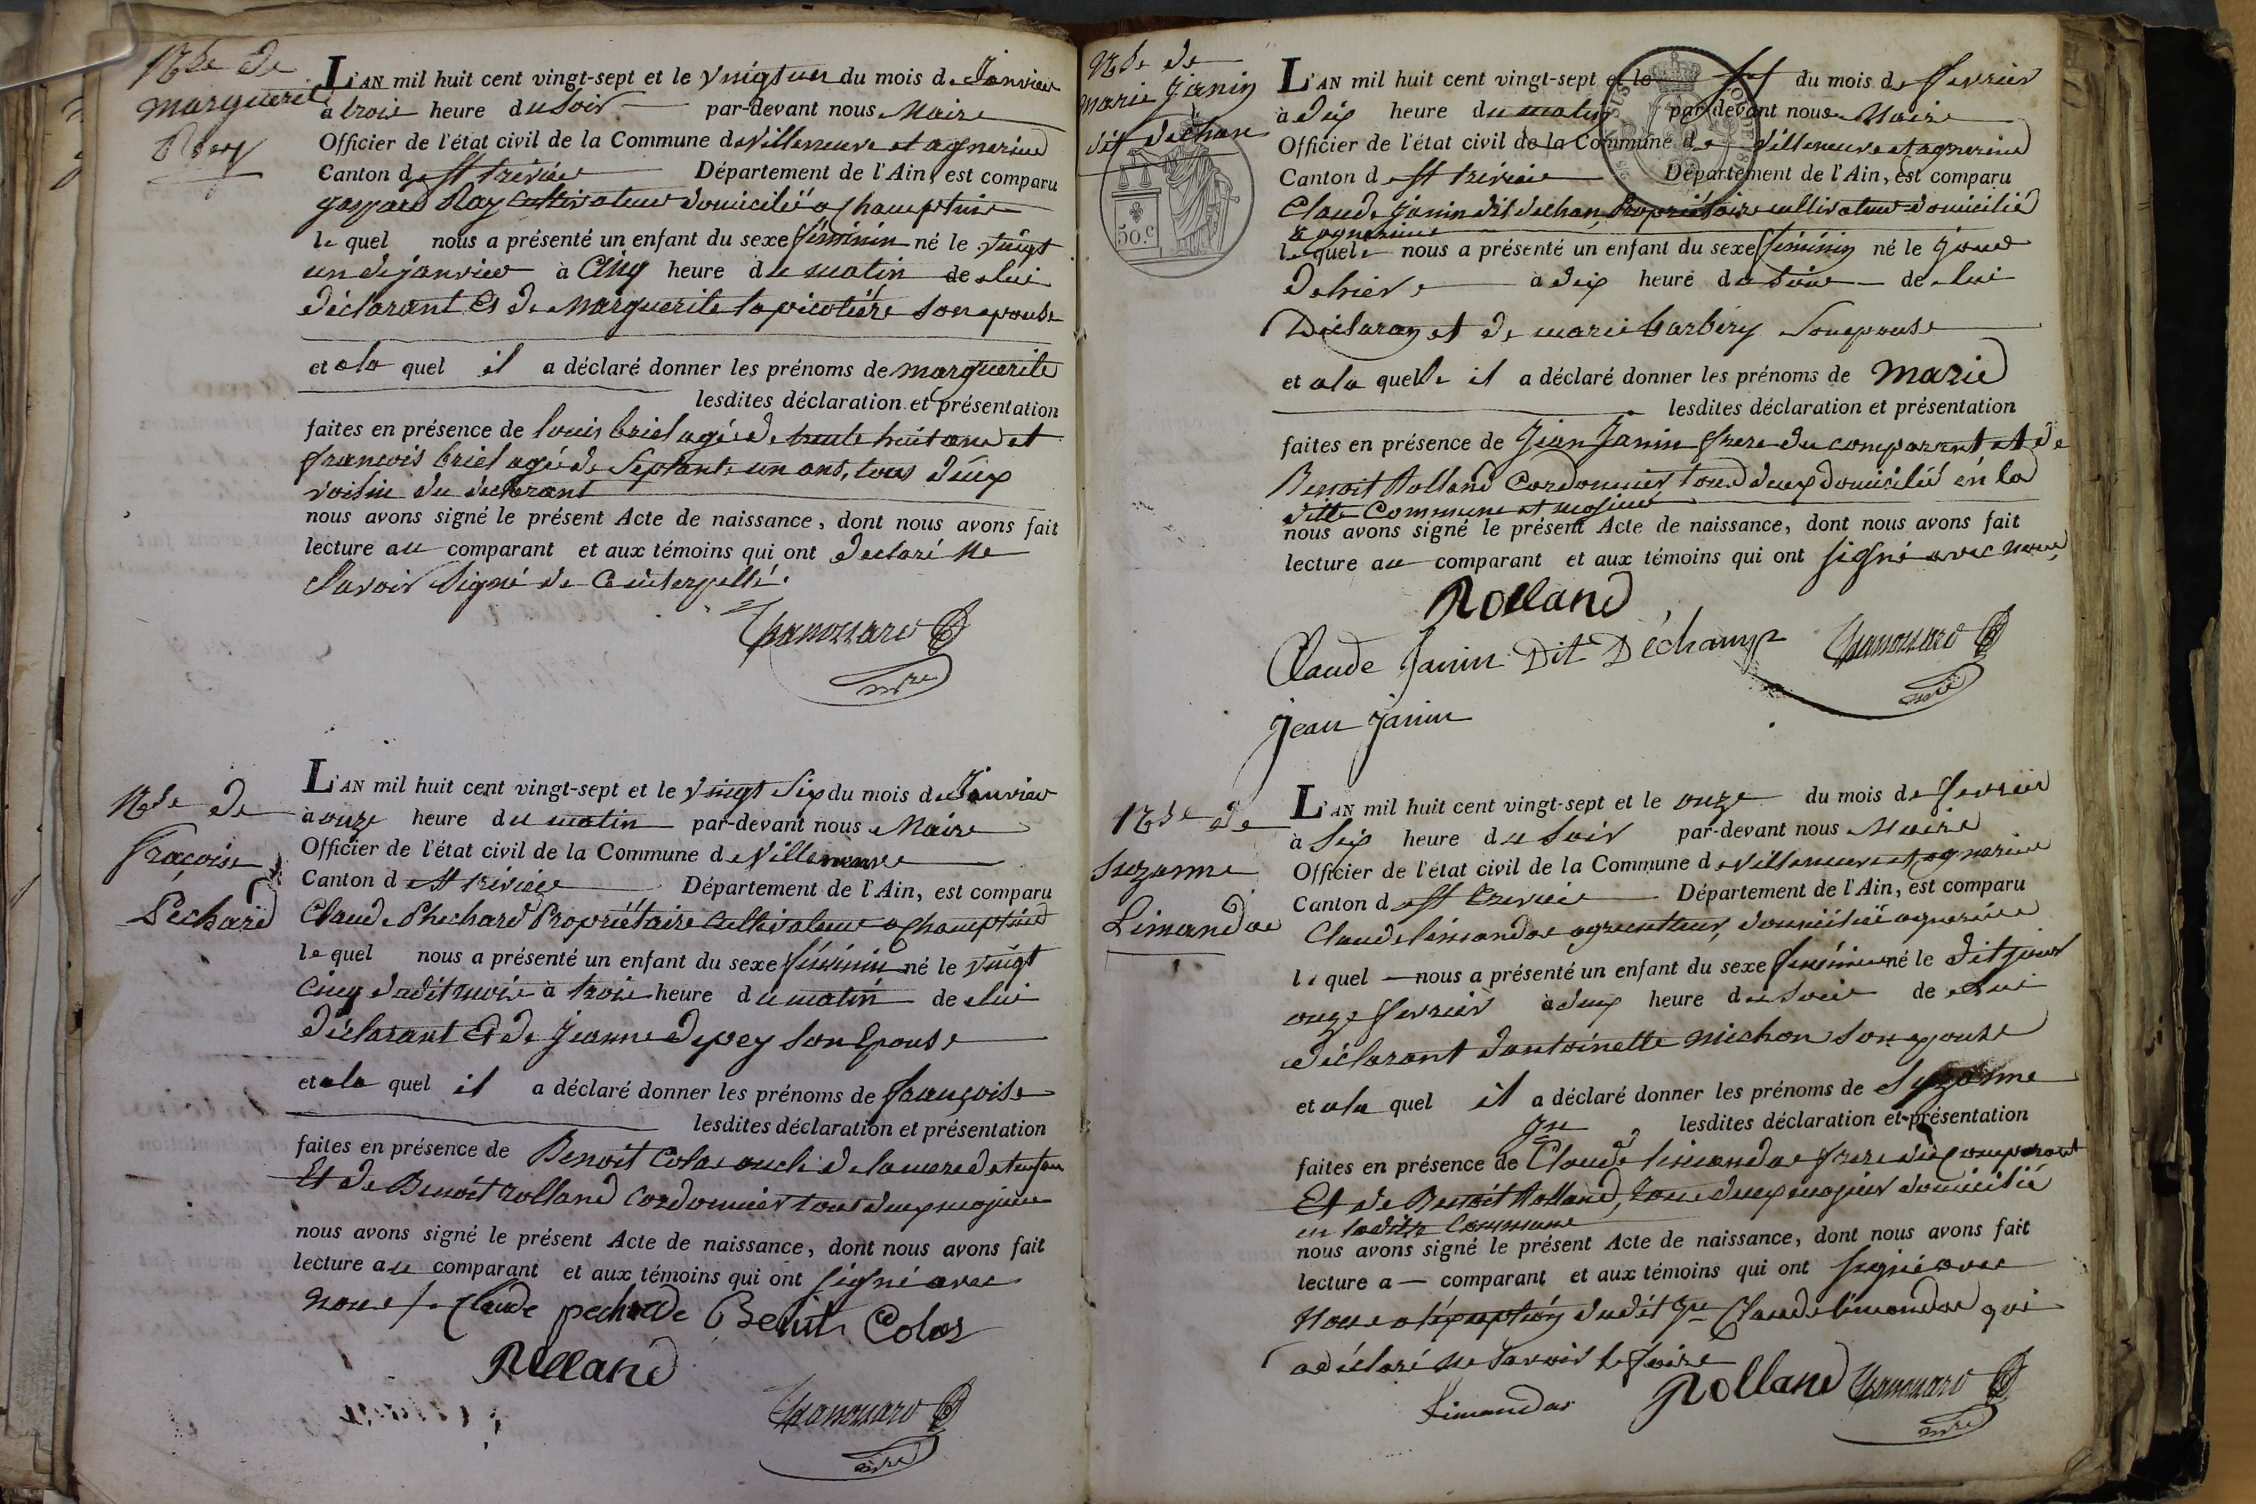 Nce de
marguerite
Rey
L'AN mil huit cent vingt-sept et le vingt un du mois de Janvier
à trois heure du soir par-devant nous Maire
Officier de l'état civil de la Commune de Villeneuve et agnerins
Canton de St trivier Département de l'Ain, est comparu
gaspard Rey Cultivateur domicilié a Champtein
le quel nous a présenté un enfant du sexe féminin né le vingt
un de janvier à Cinq heure du matin de lui
déclarant et de Marguerite la son epouse
et a la quel il a déclaré donner les prénoms de marguerite
lesdites déclaration et présentation
faites en présence de louis briel agée de trente huit ans et
francois briel agé de Septante un ans, tous deux
voisin du declarant
nous avons signé le présent Acte de naissance, dont nous avons fait
lecture au comparant et aux témoins qui ont declaré ne
Savoir Signé de Ce interpellé.
mre
Nce de
fraçoise
Pechard
L'AN mil huit cent vingt-sept et le vingt Six du mois de Janvier
à onze heure du matin par-devant nous Maire
Officier de l'état civil de la Commune de Villeneuve
Canton de St trivier Département de l'Ain, est comparu
Claude Phechard Propriétaire Cultivateur a Champtein
le quel nous a présenté un enfant du sexe féminin né le vingt
Cinq dudit mois à trois heure du matin de lui
déclarant Et de Jeanne depey Son Epouse
et a la quel il a déclaré donner les prénoms de françoise
lesdites déclaration et présentation
faites en présence de Benoit Colas oncle de la mere de
Et de Benoit Rolland Cordonnier tous deux majeur
nous avons signé le présent Acte de naissance, dont nous avons fait
lecture au comparant et aux témoins qui ont signé avec
nous Claude pecharde Benoit Colas
Rolland
mre
Nce de
marie Janin
dit dechan
50 C
L'AN mil huit cent vingt-sept et le sept du mois de fevrier
à dix heure du matin par-devant nous Maire
Officier de l'état civil de la Commune de Villeneuve et agnerins
Canton de St trivier Département de l'Ain, est comparu
Claude Janin dit dechan Propriétaire cultivateur domicilié
a agnerins
le quel nous a présenté un enfant du sexe féminin né le jour
de hiere à dix heure du soir de lui
Declaran et de marie barbery Son epouse
et a la quelle il a déclaré donner les prénoms de Marie
lesdites déclaration et présentation
faites en présence de Jean Janin frere du comparant et de
Benoit Rolland Cordonnier tous deux domicilié en la
ditte Commune et majeur
nous avons signé le présent Acte de naissance, dont nous avons fait
lecture au comparant et aux témoins qui ont signé avec nous
Rolland
Claude Janin Dit Déchamp
mre
Jean Janin
Nce de
Suzanne
Limandas
L'AN mil huit cent vingt-sept et le onze du mois de fevrier
à Six heure du Soir par-devant nous Maire
Officier de l'état civil de la Commune de Villeneuve et agnerins
Canton de St trivier Département de l'Ain, est comparu
Claude limandas agriculteur, domicilié agnerins
le quel nous a présenté un enfant du sexe feminin né le dit jour
onze fevrier à deux heure du Soir de lui
déclarant d'antoinette michon Son epouse
et a la quel il a déclaré donner les prénoms de Suzanne
lesdites déclaration et présentation
Jn
faites en présence de Claude limandas frere du Comparant
Et de Benoit Rolland, tous deux majeur domicilié
en ladite Commune
nous avons signé le présent Acte de naissance, dont nous avons fait
lecture a comparant et aux témoins qui ont signé avec
Nous a l'exception dudit Jn Claude limandas qui
a déclaré ne Savoir le faire
Limandas Rolland
mre